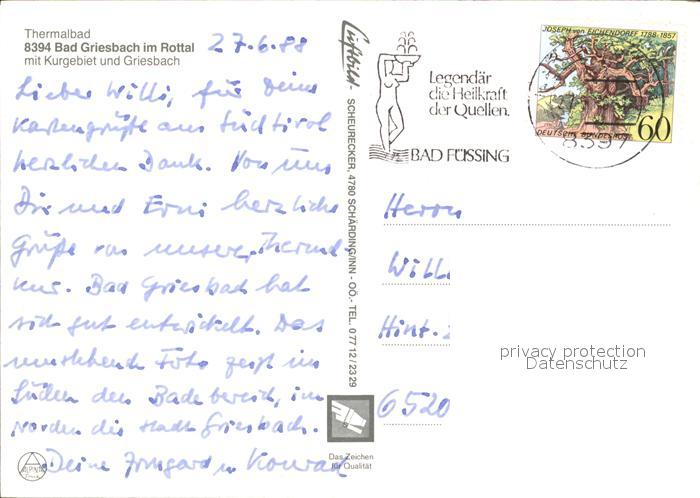 Thermalbad
8394 Bad Griesbach im Rottal
mit Kurgebiet und Griesbach
27.6.88
Lieber Willi, für Deine
Kartengrüße aus Südtirol
herzlichen Dank. Von uns
Dir und Erni herzliche
Grüße von unserer Thermal-
kur. Bad Griesbach hat
sich gut entwickelt. Das
umstehende Foto zeigt im
Süden den Badebereich, im
Norden die Stadt Griesbach.
Deine Irmgard u Konrad
Luftbild
SCHEURECKER, 4780 SCHÄRDING/INN - OÖ.- TEL. 0 77 12 / 23 29
Das Zeichen
für Qualität
Legendär
die Heilkraft
der Quellen.
BAD FÜSSING
JOSEPH von EICHENDORFF 1788-1857
DEUTSCHE BUNDESPOST
60
8397
Herrn
Willi
Hint.
6520
privacy protection
Datenschutz